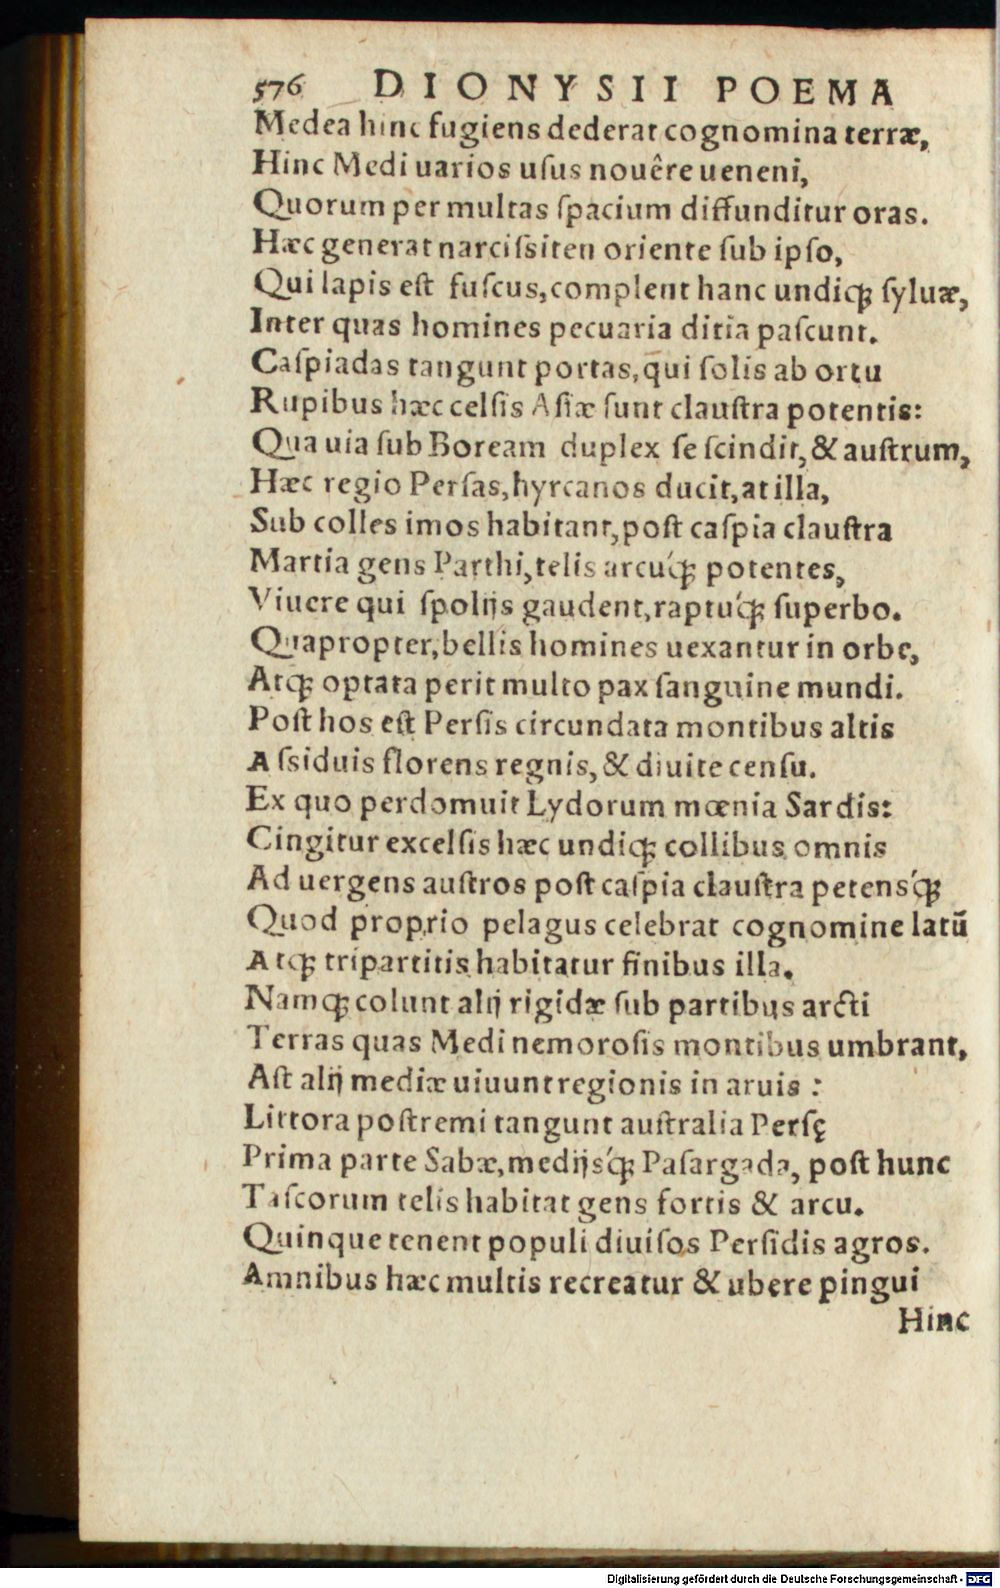 576 DIONYSII POEMA
Medea hinc fugiens dederat cognomina terræ,
Hinc Medi uarios uſus nouêre ueneni,
Quorum per multas ſpacium diffunditur oras.
Hæc generat narciſsiten oriente ſub ipſo,
Qui lapis eſt fuſcus, complent hanc undiqꝫ ſyluæ,
Inter quas homines pecuaria ditia paſcunt.
Caſpiadas tangunt portas, qui ſolis ab ortu
Rupibus hæc celſis Aſiæ ſunt clauſtra potentis:
Qua uia ſub Boream duplex ſe ſcindit, & auſtrum,
Hæc regio Perſas, hyrcanos ducit, at illa,
Sub colles imos habitant, poſt caſpia clauſtra
Martia gens Parthi, telis arcuq́ꝫ potentes,
Viuere qui ſpolijs gaudent, raptuq́ꝫ ſuperbo.
Quapropter, bellis homines uexantur in orbe,
Atqꝫ optata perit multo pax ſanguine mundi.
Poſt hos eſt Perſis circundata montibus altis
Aſsiduis florens regnis, & diuite cenſu.
Ex quo perdomuit Lydorum mœnia Sardis:
Cingitur excelſis hæc undiqꝫ collibus omnis
Ad uergens auſtros poſt caſpia clauſtra petensq́ꝫ
Quod proprio pelagus celebrat cognomine latū
Atqꝫ tripartitis habitatur finibus illa.
Namqꝫ colunt alij rigidæ ſub partibus arcti
Terras quas Medi nemoroſis montibus umbrant,
Aſt alij mediæ uiuunt regionis in aruis:
Littora poſtremi tangunt auſtralia Perſę
Prima parte Sabæ, medijsq́ꝫ Paſargada, poſt hunc
Taſcorum telis habitat gens fortis & arcu.
Quinque tenent populi diuiſos Perſidis agros.
Amnibus hæc multis recreatur & ubere pingui
Hinc
Digitalisierung gefördert durch die Deutsche Forschungsgemeinschaft - DFG